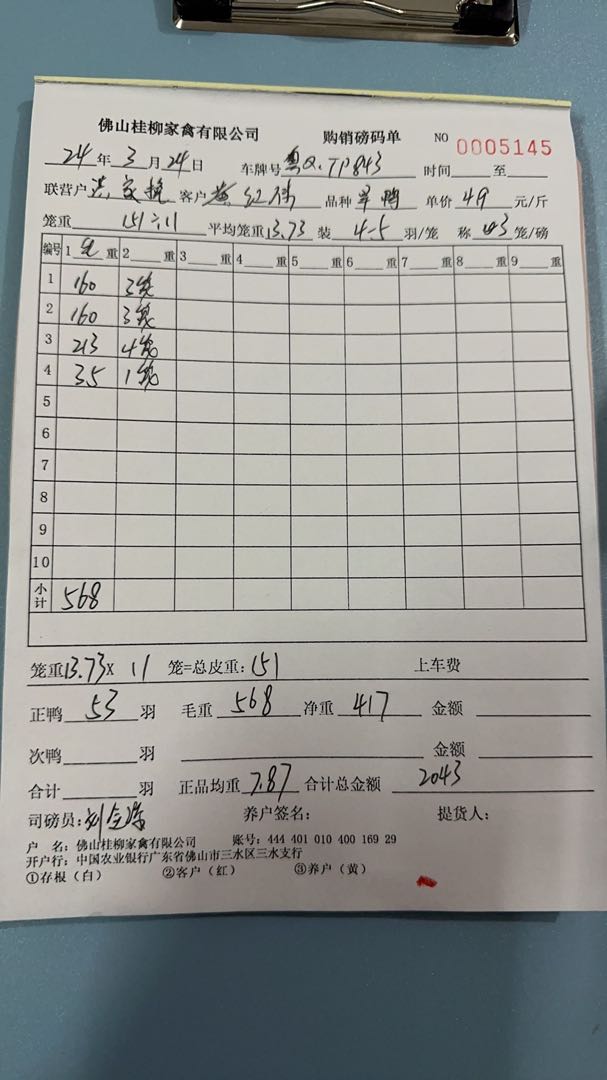 佛山桂柳家禽有限公司 购销磅码单 NO 0005145
24 年 3 月 24 日 车牌号 粤Q.TP843 时间 至
联营户 客户 红 品种 旱鸭 单价 49 元/斤
笼重 151÷11 平均笼重 13.73 装 4-5 羽/笼 称 笼/磅
编号 1 毛 重 2 重 3 重 4 重 5 重 6 重 7 重 8 重 9 重
1 160 3笼
2 160 3笼
3 213 4笼
4 35 1笼
5
6
7
8
9
10
小计 568
笼重 13.73 X 11 笼=总皮重: 151 上车费
正鸭 53 羽 毛重 568 净重 417 金额
次鸭 羽 金额
合计 羽 正品均重 7.87 合计总金额 2043
司磅员: 刘 养户签名: 提货人:
户 名: 佛山桂柳家禽有限公司 账号: 444 401 010 400 169 29
开户行: 中国农业银行广东省佛山市三水区三水支行
①存根（白） ②客户（红） ③养户（黄）